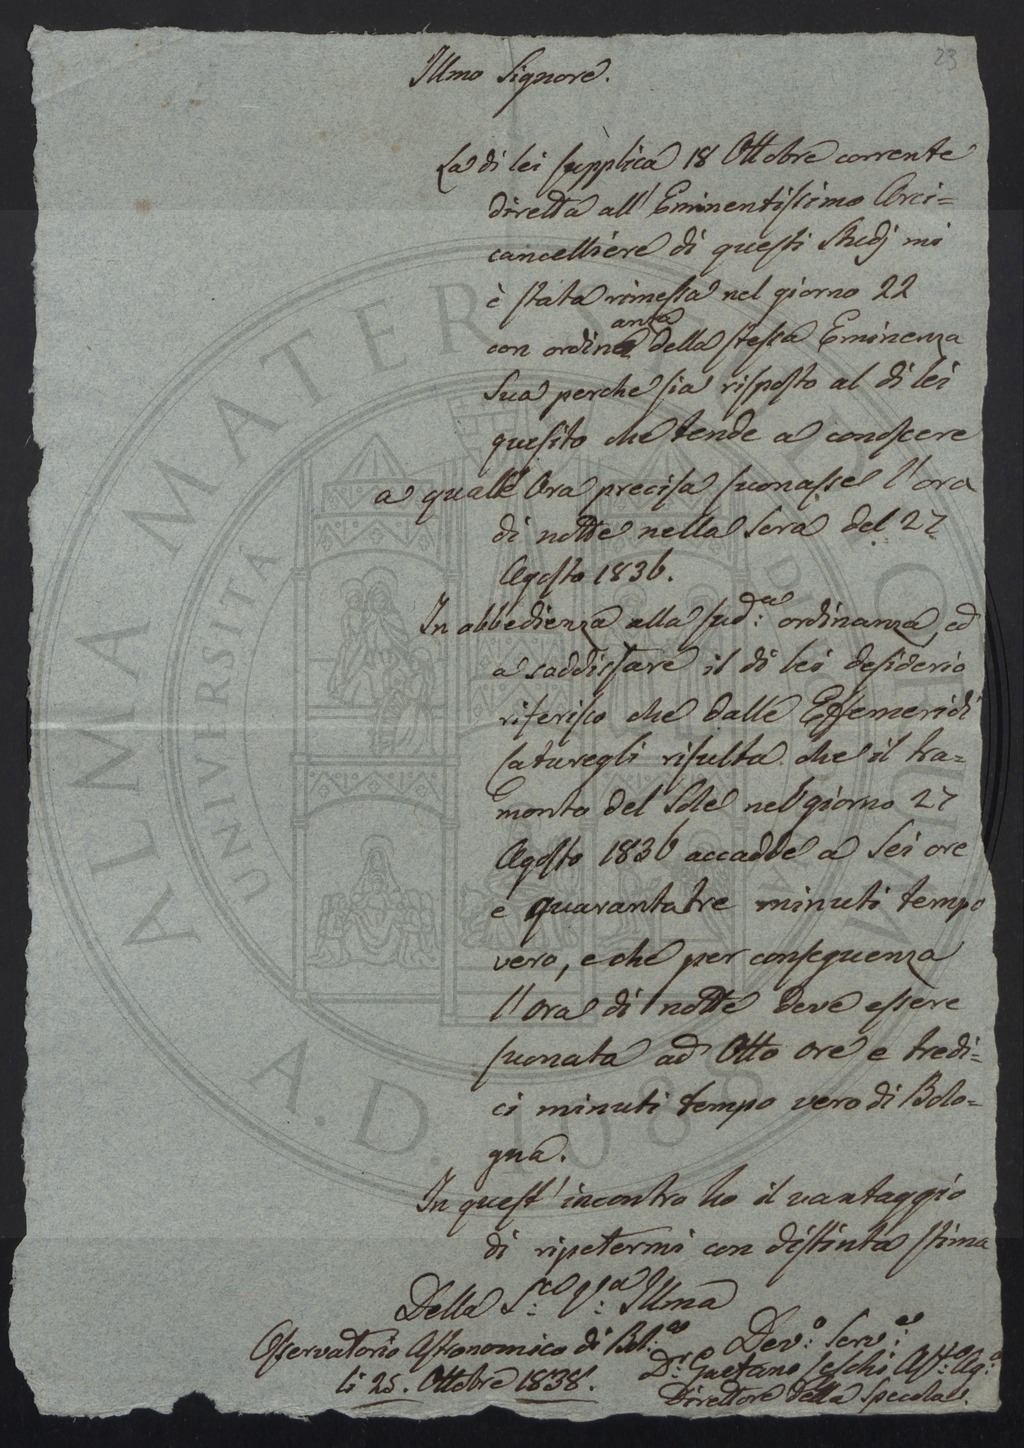 23
Illmo Signore.
La di lei supplica 18 Ottobre corrente
diretta all' Eminentissimo Arci=
cancelliere di questi Studj mi
è stata rimessa nel giorno 22
con ordinanza della stessa Eminenza
Sua perche sia risposto al di lei
quesito che tende a conoscere
a quale Ora precisa suonasse l'ora
di notte nella sera del 27
Agosto 1836.
In obbedienza alla sud:a ordinanza, ed
a soddisfare il di lei desiderio
riferisco che dalle Effemeridi
Caturegli risulta che il tra=
monto del Sole nel giorno 27
Agosto 1836 accadde a Sei ore
e quarantatre minuti tempo
vero, e che per conseguenza
l'Ora di notte deve essere
suonata ad Otto ore e tredi=
ci minuti tempo vero di Bolo=
gna.
In quest' incontro ho il vantaggio
di ripetermi con distinta stima
Della S: V:a Illma
Osservatorio Astronomico di Bol:a
li 25. Ottobre 1838.
Dev:o Serv:e
D.r Gaetano Ceschi Ast:o Ag:o
Direttore della Specola.
ALMA MATER STUDIORUM
UNIVERSITÀ DI BOLOGNA
A.D. 1088